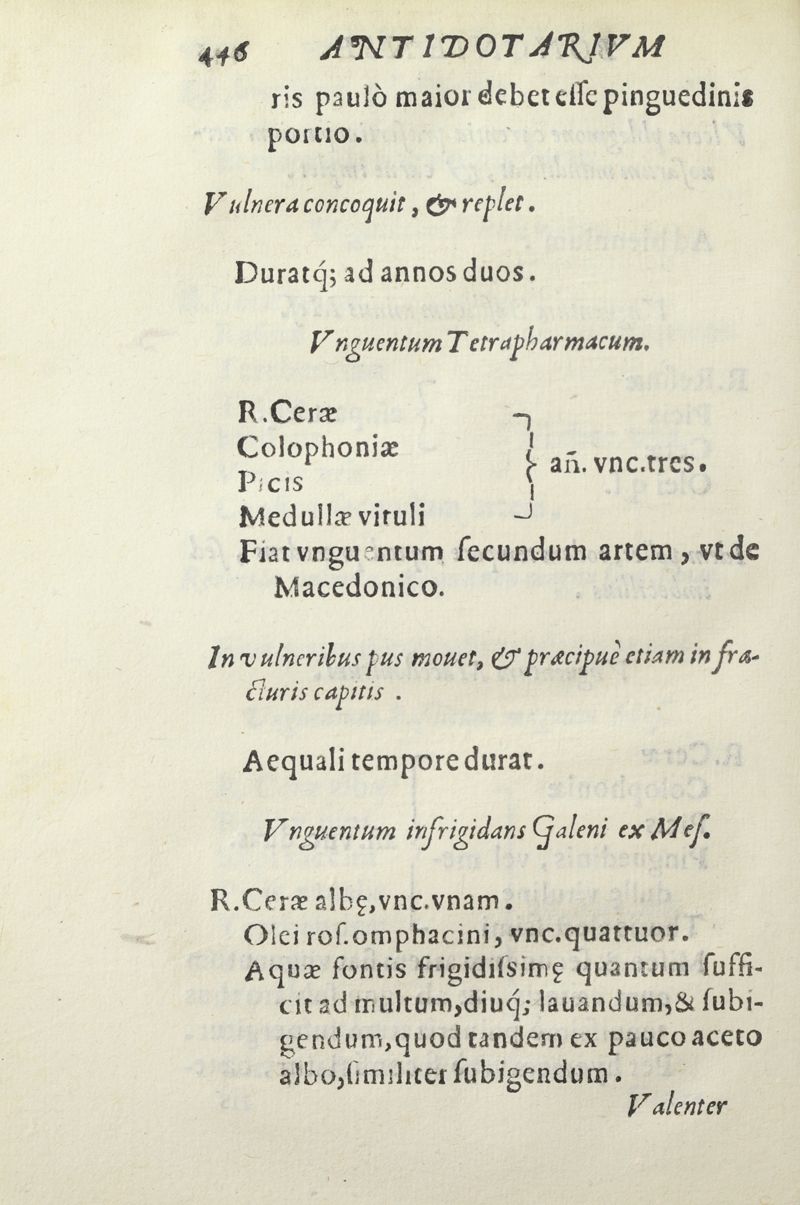 446 ANTIDOTARIVM
ris paulò maior debet eſſe pinguedinis
portio.
Vulnera concoquit, & replet.
Duratq́; ad annos duos.
Vnguentum Tetrapharmacum.
R.Ceræ
Colophoniæ
Picis
Medullæ vituli
añ. vnc.tres.
Fiat vnguentum ſecundum artem, vt de
Macedonico.
In vulneribus pus mouet, & præcipuè etiam in fra-
cturis capitis .
Aequali tempore durat.
Vnguentum infrigidans Galeni ex Meſ.
R.Ceræ albę,vnc.vnam.
Olei roſ.omphacini, vnc.quattuor.
Aquæ fontis frigidiſsimę quantum ſuffi-
cit ad multum,diuq́; lauandum,& ſubi-
gendum,quod tandem ex pauco aceto
albo,ſimiliter ſubigendum.
Valenter